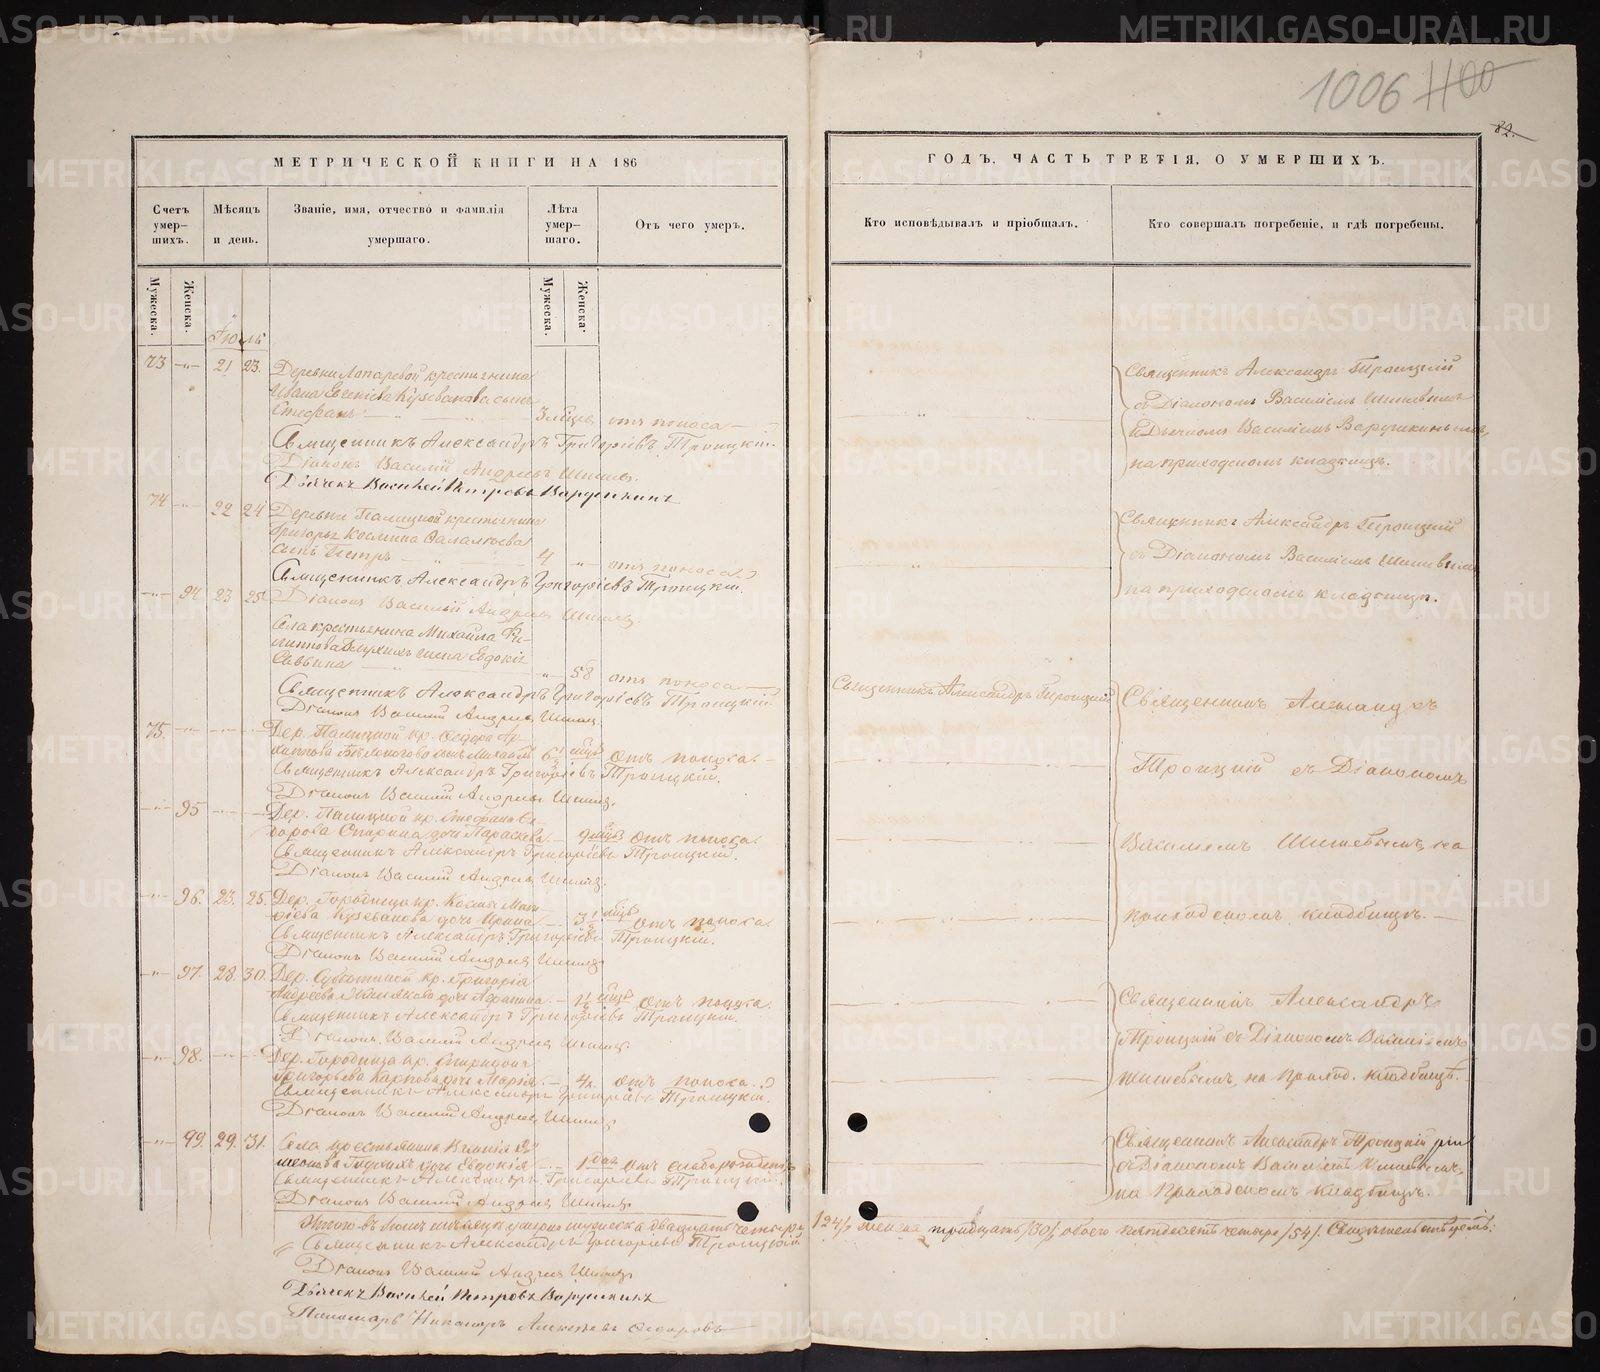 1006 1100
82.
МЕТРИЧЕСКОЙ КНИГИ НА 186
ГОДЪ, ЧАСТЬ ТРЕТІЯ, О УМЕРШИХЪ.
Счетъ умер-шихъ.
Мѣсяцъ и день.
Званіе, имя, отчество и фамилія умершаго.
Лѣта умер-шаго.
Отъ чего умеръ.
Кто исповѣдывалъ и пріобщалъ.
Кто совершалъ погребеніе, и гдѣ погребены.
Мужеска.
Женска.
Мужеска.
Женска.
Іюль
73 21 23. Деревни Лопаревой крестьянина
Ивана сынъ
Стефанъ 3 мѣсц. отъ поноса
Священникъ Александръ Григоріевъ Троицкій.
Діаконъ Василій Андреевъ Шишевъ.
Дьячекъ Василей Петровъ Варушкинъ
Священникъ Александръ Троицкій
съ Діакономъ Василіемъ Шишевымъ
и Дьячкомъ Василіемъ Варушкинымъ,
на приходскомъ кладбищѣ.
74 22 24 Деревни Палицкой крестьянина
Григорья Космина
сынъ Петръ 4 отъ поноса
Священникъ Александръ Григоріевъ Троицкій.
Діаконъ Василій Андреевъ Шишевъ
Священникъ Александръ Троицкій
съ Діакономъ Василіемъ Шишевымъ
на приходскомъ кладбищѣ.
94 23 25
Села крестьянина Михайла Фи-
липпова жена Евдокія
Саввина 58 отъ поноса
Священникъ Александръ Григоріевъ Троицкій
Діаконъ Василій Андреевъ Шишевъ
Священникъ Александръ Троицкій
Священникъ Александръ
Троицкій съ Діакономъ
Василіемъ Шишевымъ, на
приходскомъ кладбищѣ.
75. Дер. Палицкой кр. Ѳедора Ар-
хиппова сынъ Михаилъ 6½ мѣсц. отъ поноса
Священникъ Александръ Григоріевъ Троицкій.
Діаконъ Василій Андреевъ Шишевъ.
95 Дер. Палицкой кр. Стефана
Спирина дочь Параскева 9 мѣсц. отъ поноса
Священникъ Александръ Григоріевъ Троицкій.
Діаконъ Василій Андреевъ Шишевъ.
96. 23. 25. Дер. Городища кр. Космы
дочь Ирина 3½ мѣсц. отъ поноса
Священникъ Александръ Григоріевъ Троицкій.
Діаконъ Василій Андреевъ Шишевъ
97. 28. 30. Дер. Субботиной кр. Григорія
Андреева дочь 1½ мѣсц. отъ поноса.
Священникъ Александръ Григоріевъ Троицкій.
Діаконъ Василій Андреевъ Шишевъ.
Священникъ Александръ
Троицкій съ Діакономъ Василіемъ
Шишевымъ, на приход. кладбищѣ.
98. Дер. Городища кр. Спиридона
Григорьева Карпова дочь Марія. 4 отъ поноса
Священникъ Александръ Григоріевъ Троицкій.
Діаконъ Василій Андреевъ Шишевъ
99. 29. 31. Села крестьянина
дочь Евдокія 1 дня отъ слаборожденія
Священникъ Александръ Григоріевъ Троицкій.
Діаконъ Василій Андреевъ Шишевъ
Священникъ Александръ Троицкій
съ Діакономъ Василіемъ Шишевымъ,
на приходскомъ кладбищѣ.
Итого въ Іюлѣ мѣсяцѣ умерло мужеска двадцать четыре /24/, женска тридцать /30/, обоего пятдесятъ четыре /54/. Свидѣтельствуемъ:
Священникъ Александръ Григоріевъ Троицкій
Діаконъ Василій Андреевъ Шишевъ
Дьячекъ Василей Петровъ Варушкинъ
Пономарь Никаноръ Алексѣевъ Ѳедоровъ
METRIKI.GASO-URAL.RU